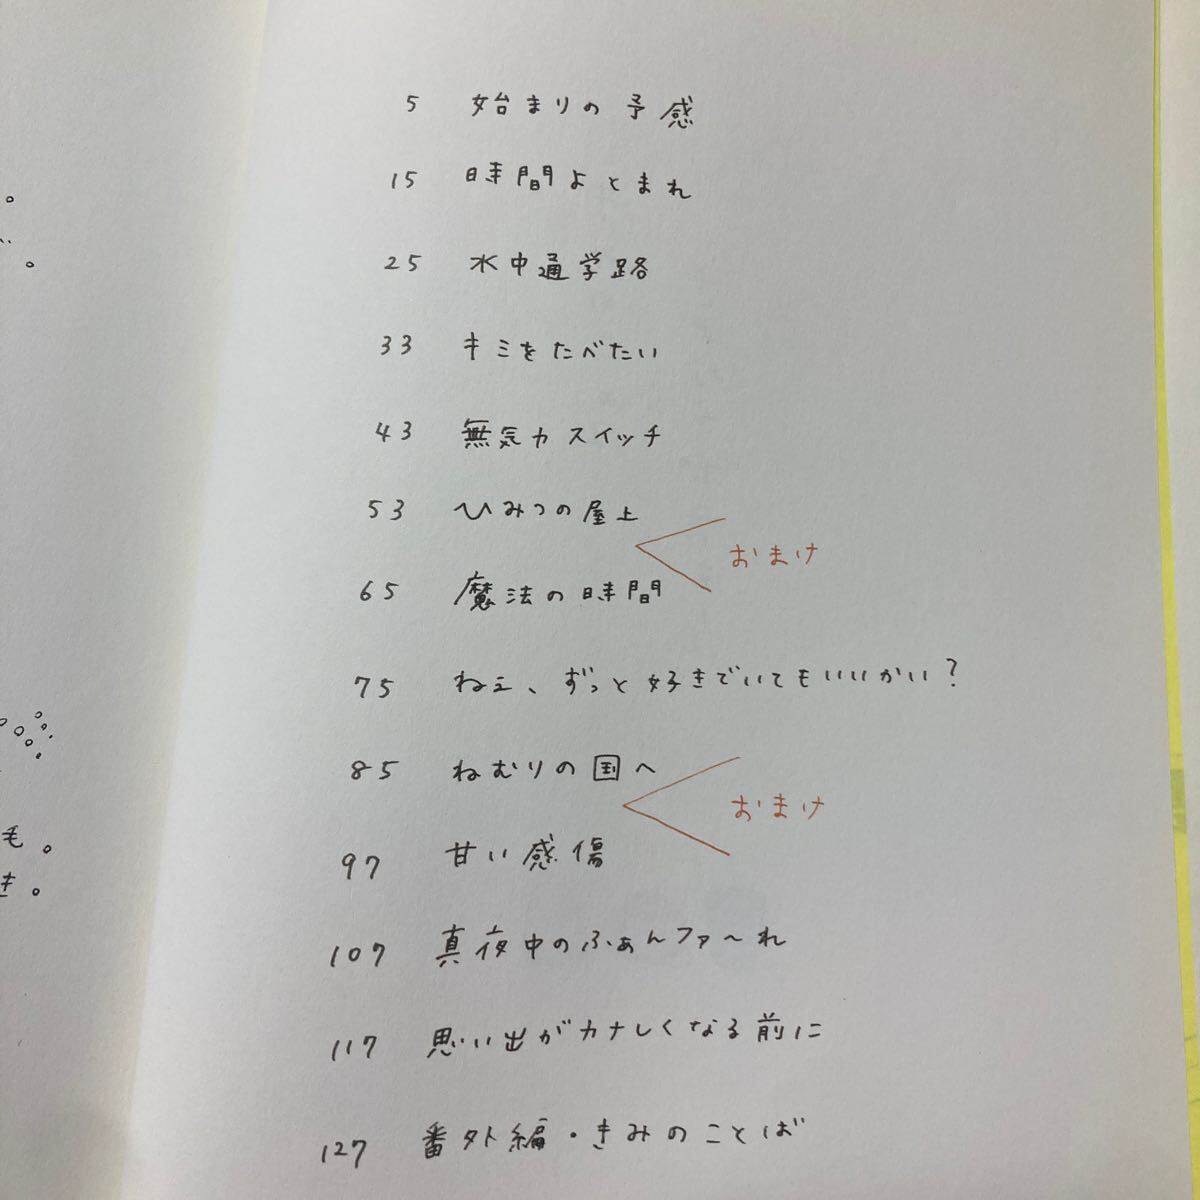 5 始まりの予感
15 時間よとまれ
25 水中通学路
33 キミをたべたい
43 無気力スイッチ
53 ひみつの屋上
おまけ
65 魔法の時間
75 ねぇ、ずっと好きでいてもいいかい?
85 ねむりの国へ
おまけ
97 甘い感傷
107 真夜中のふぁんファ〜れ
117 思い出がカナしくなる前に
127 番外編・きみのことば
毛。
き。